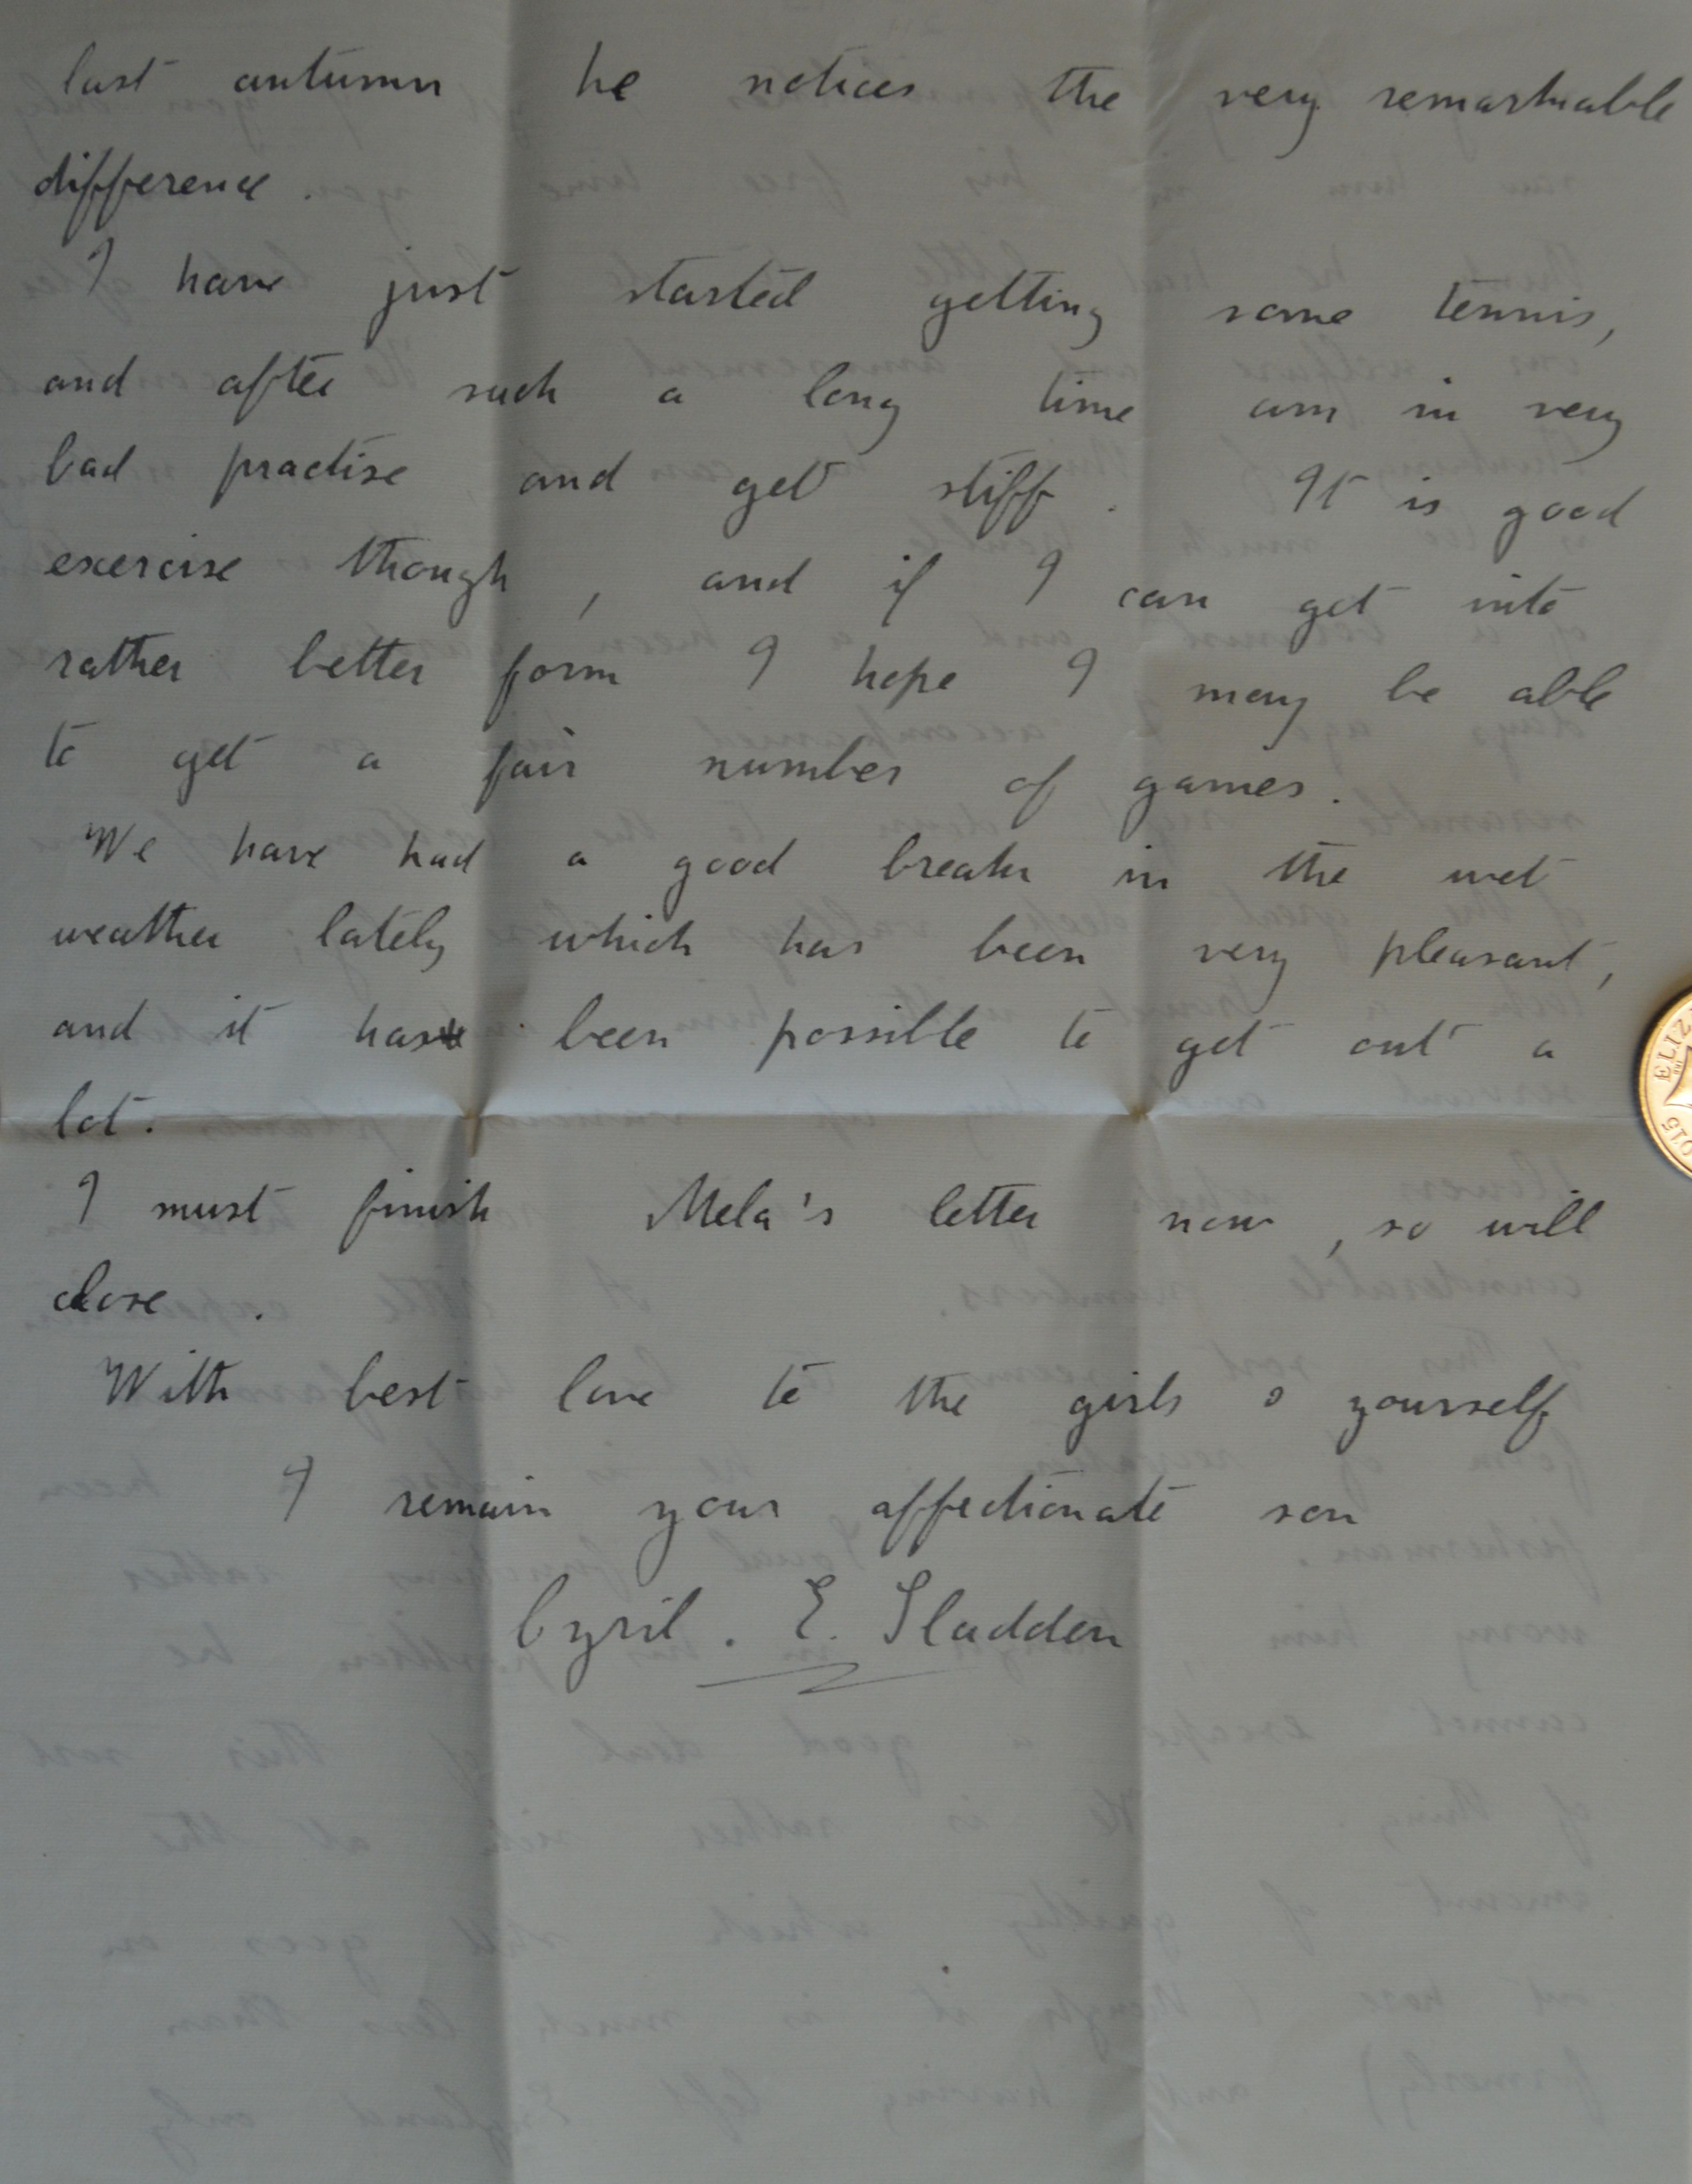 last autumn he notices the very remarkable
difference.
I have just started getting some tennis,
and after such a long time am in very
bad practise, and get stiff. It is good
exercise though, and if I can get into
rather better form I hope I may be able
to get a fair number of games.
We have had a good break in the wet
weather lately which has been very pleasant,
and it has been possible to get out a
lot.
I must finish Mela's letter now, so will
close.
With best love to the girls & yourself
I remain your affectionate son
Cyril. E. Sladden
ELIZ